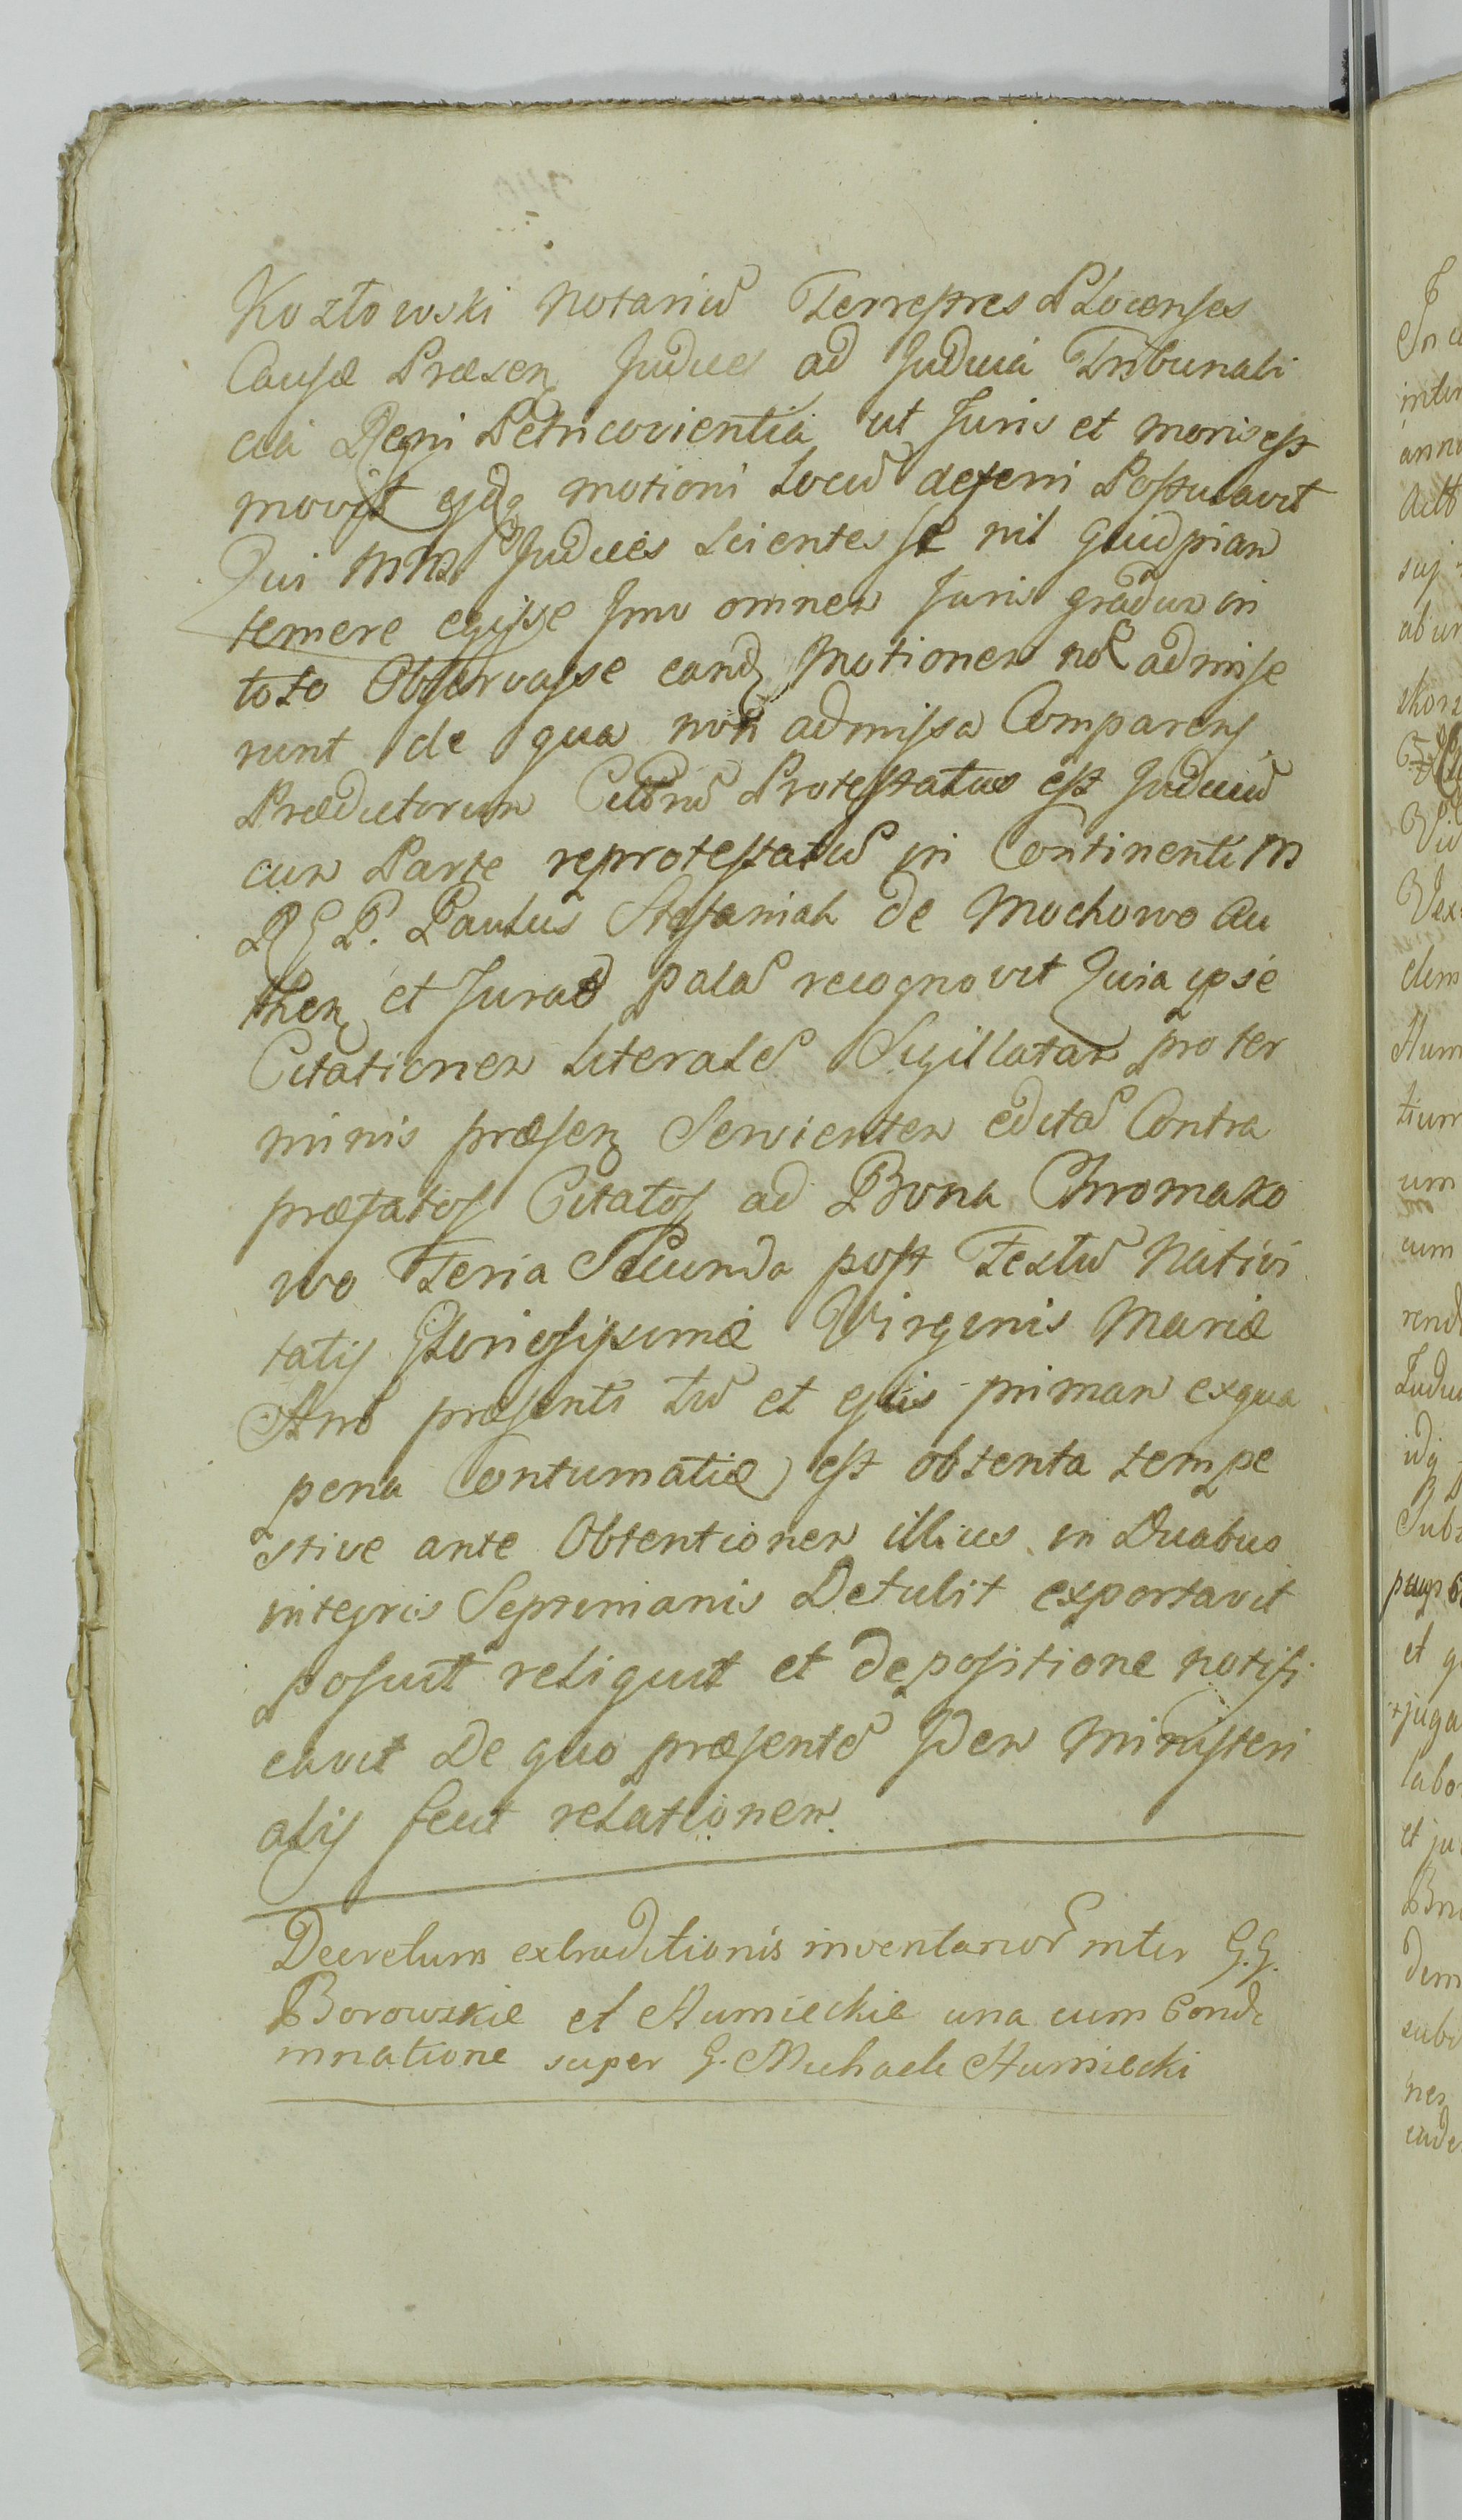 Kozłowski Notariũ Terrestres Plocenses
Causæ Præsen Judices ad Judicia Tribunali
cia Regni Petricoviensia ut Juris et moris est
movit ejdq motioni Locũ deferri Postulavit
Qui MM Judices Scientes se nil quidpiam
temere egisse Imo omnem Juris gradum in
toto Observasse eand Motionem nõ admise
runt de qua non admissa Comparens
Prædictorum Citorũ Protestatus est Judiciũ
cum Parte reprotestatũ in Continenti M
R G P. Paulus Stefaniak de Mochowo Au
then et Jurat palã recognovit Quia ipse
Citationem Literalẽ Sigillatam pro ter
minis præsen Servientem editã Contra
præfatos Citatos ad Bona Chromako
wo Feria Secunda post Festũ Nativi
tatis Gloriosissimæ Virginis Mariæ
Añõ præsenti tũ et ejus primam ex qua
pena Contumatiæ est obtenta tempe
stive ante Obtentionem illius in Duabus
integris Septimanis Detulit exportavit
posuit reliquit et depositione notifi
cavit De quo præsentẽ Idem Ministeri
alis fecit relationem.
Decretum extraditionis inventariorũ inter G.G.
Borowskie et Humieckie una cum Conde
mnatione super G. Michaele Humiecki